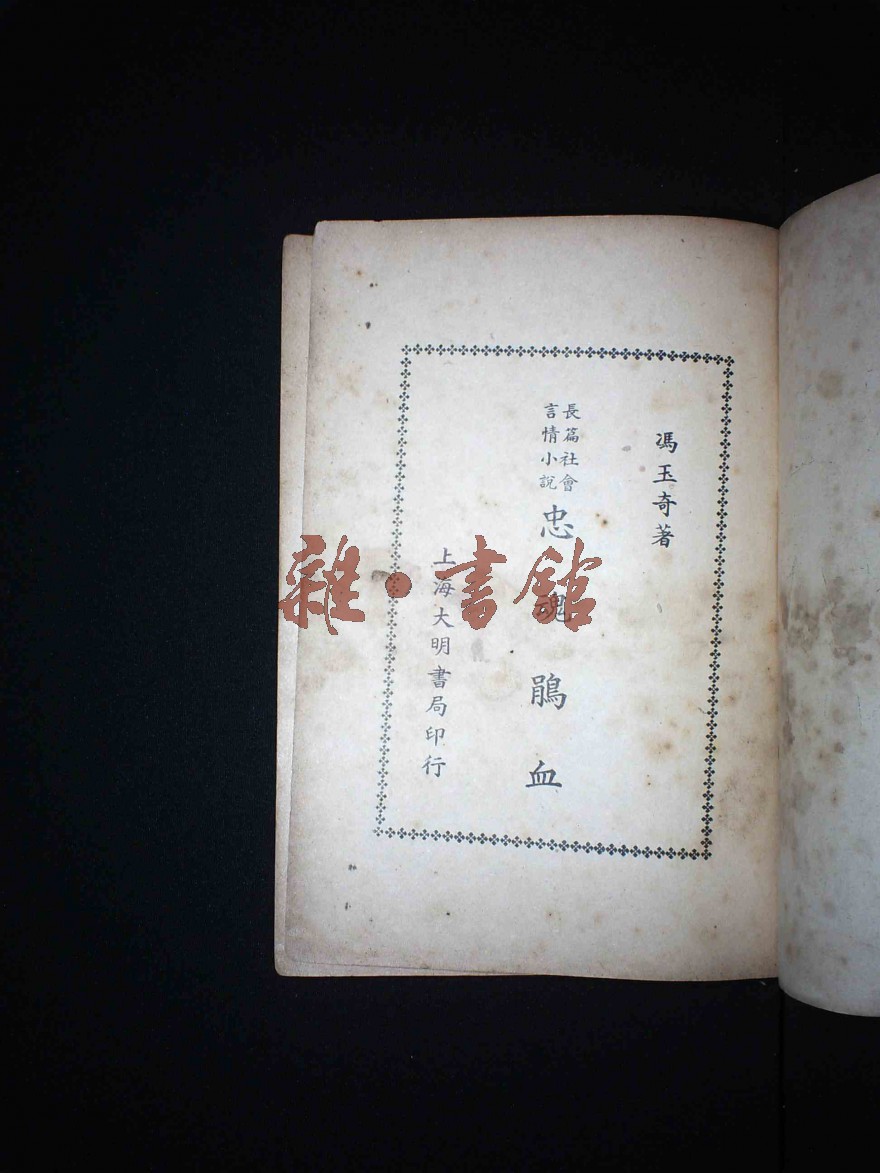 馮玉奇著
長篇社會
言情小說
忠魂鵑血
上海大明書局印行
雜·書館